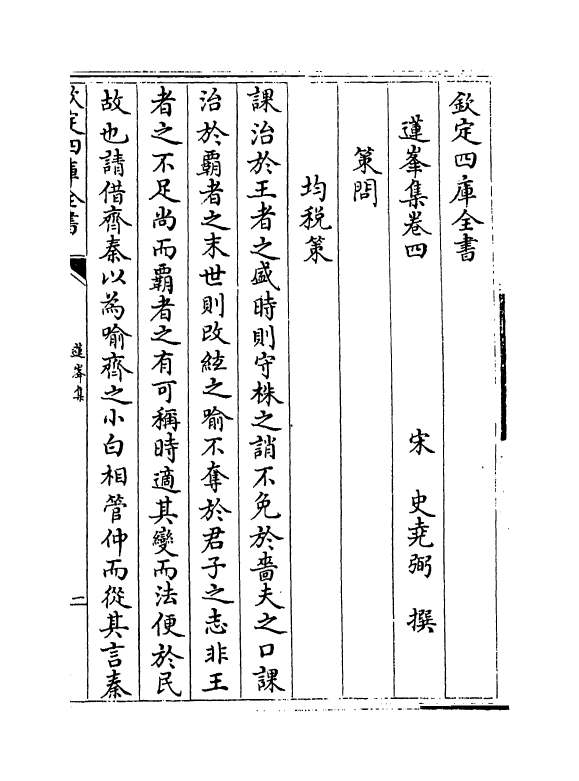 欽定四庫全書
蓮峯集卷四
宋 史堯弼 撰
策問
均稅策
課治於王者之盛時則守株之誚不免於嗇夫之口課
治於霸者之末世則改絃之喻不奪於君子之志非王
者之不足尚而霸者之有可稱時適其變而法便於民
故也請借齊秦以為喻齊之小白相管仲而從其言秦
欽定四庫全書
蓮峯集
二